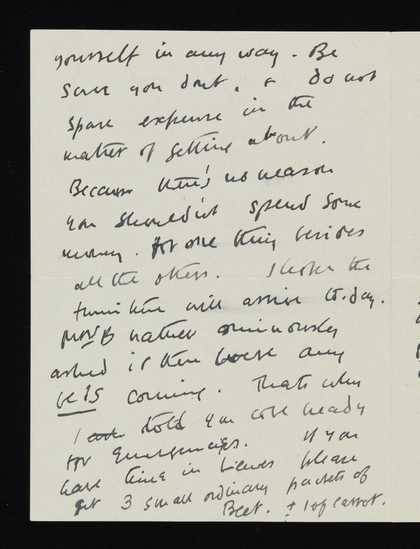 yourself in any way. Be
sure you dont, & do not
spare expense in the
matter of getting about.
Because there's no reason
you shouldn't spend some
money. For one thing besides
all the others. I hope the
furniture will arrive to-day.
rather ominously
asked if there were any
coming. Thats why
I told you ready
for emergencies. If you
have time in Lewes please
get 3 small ordinary packets of
Beet. + 1 of carrot.